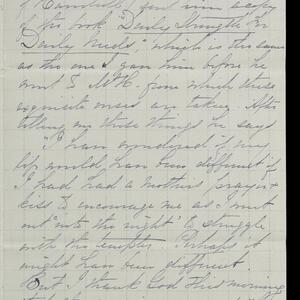 of
of the book "Daily Strength for
Daily Needs," which is the same
as the one I gave him before he
went to from which these
exquisite verses are taken. After
telling me these things he says
"I have wondered if my
life would have been different if
I had had a mother's prayer &
kiss to encourage me as I went
out 'into the night' to struggle
with the tempter. Perhaps it
might have been different.
But I thank God this morning